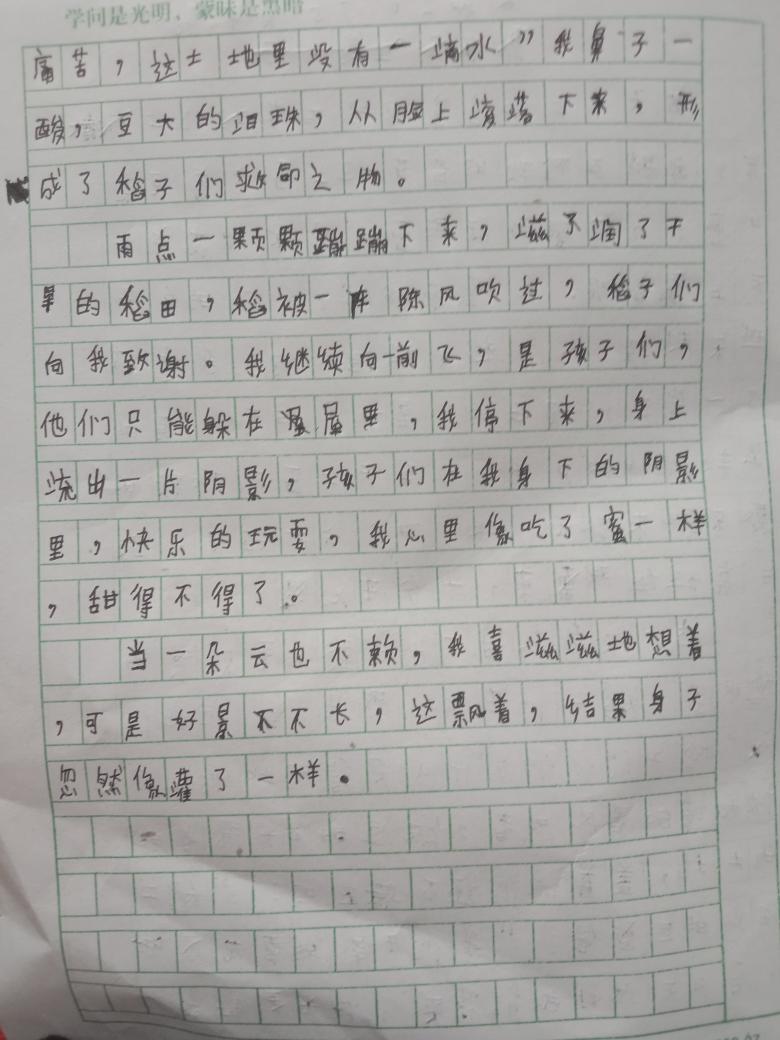 学问是光明，蒙昧是黑暗
痛苦，这土地里没有一滴水”我鼻子一
酸，豆大的泪珠，从脸上滚落下来，形
成了稻子们救命之物。
雨点一颗颗蹦蹦下来，滋了润了干
旱的稻田，稻被一阵阵风吹过，稻子们
向我致谢。我继续向前飞，是孩子们，
他们只能躲在屋里，我停下来，身上
流出一片阴影，孩子们在我身下的阴影
里，快乐的玩耍，我心里像吃了蜜一样
，甜得不得了。
当一朵云也不赖，我喜滋滋地想着
，可是好景不不长，这飘着，结果身子
忽然像灌了一样。